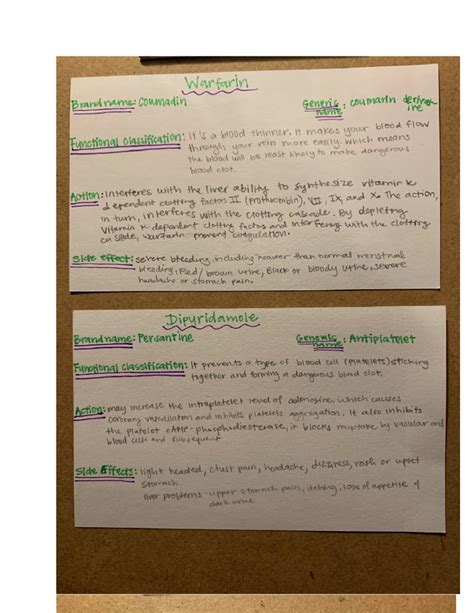 Warfarin
Brand name: Coumadin Generic name: coumarin derivative
Functional Classification: It's a blood thinner. It makes your blood flow
through your vein more easily which means
the blood will be least likely to make dangerous
blood clot.
Action: Interferes with the liver ability to synthesize vitamin K
dependent clotting factors II (prothrombin), VII, IX, and X. The action,
in turn, interferes with the clotting cascade. By depleting
vitamin K-dependent clotting factors and interfering with the clotting
cascade, warfarin prevent coagulation.
Side effect: severe bleeding, including heavier than normal menstrual
bleeding, Red/brown urine, Black or bloody urine, severe
headache or stomach pain.
Dipyridamole
Brand name: Persantine Generic name: Antiplatelet
Functional classification: It prevents a type of blood cell (platelets) sticking
together and forming a dangerous blood clot.
Action: may increase the intraplatelet level of adenosine, which causes
coronary vasodilation and inhibits platelets aggregation. It also inhibits
the platelet cAMP-phosphodiesterase, it blocks reuptake by vascular and
blood cells and subsequent
Side Effects: light headed, chest pain, headache, dizziness, rash or upset
stomach
liver problems - upper stomach pain, itching, loss of appetite &
dark urine